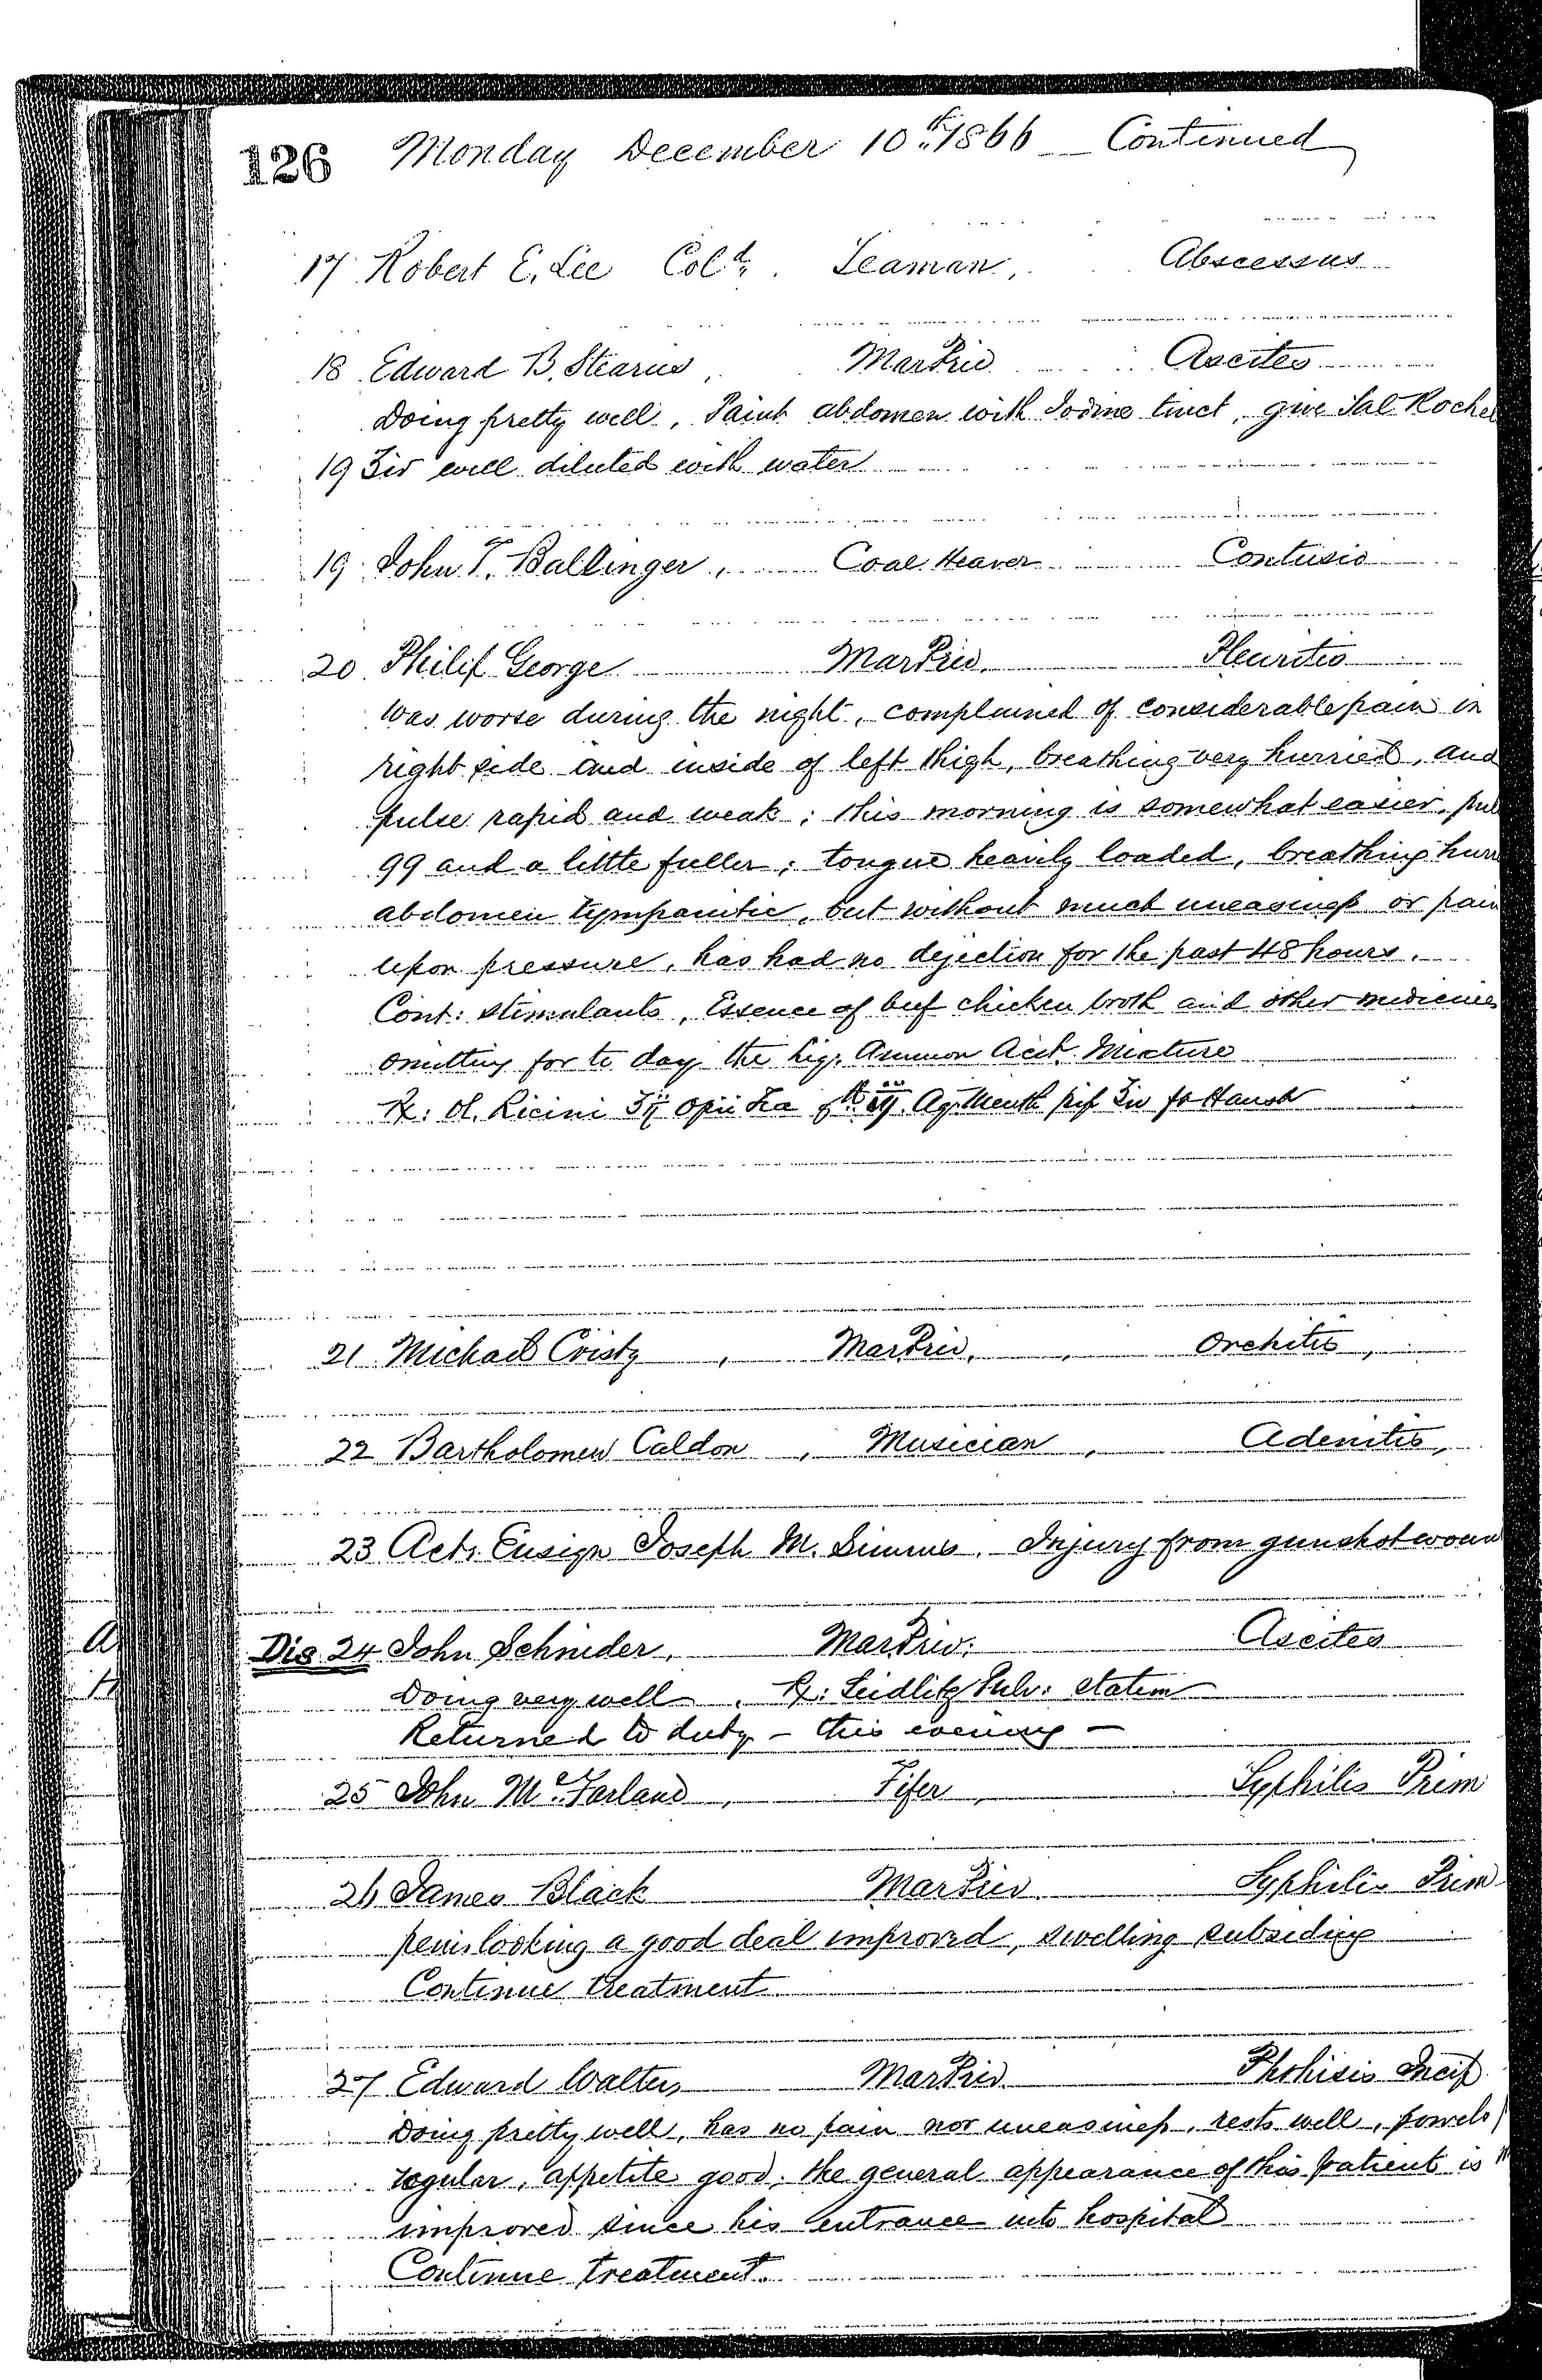 126 Monday December 10th 1866 — Continued
17 Robert E. Lee Cold. Seaman, Abscessus
18 Edward B. Stearns, Mar Priv Ascites
Doing pretty well, Paint abdomen with Iodine tinct, give Sal Rochel
19 ʒiv well diluted with water
19 John T. Ballinger, Coal Heaver Contusio
20 Philip George Mar Priv. Pleuritis
Was worse during the night, complained of considerable pain in
right side and inside of left thigh, breathing very hurried, and
pulse rapid and weak; this morning is somewhat easier, pul
99 and a little fuller; tongue heavily loaded, breathing hurr
abdomen tympanitic, but without much uneasiness or pain
upon pressure, has had no dejection for the past 48 hours.
Cont: stimulants, Essence of beef chicken broth and other medicines
omitting for to day the Liq. Ammon Acet. Mixture
Rx: Ol. Ricini Opii Aq. Menth pip ft Haust
21 Michael Cristy, Mar Priv, Orchitis,
22 Bartholomew Caldon, Musician, Adenitis,
23 Actg Ensign Joseph M. Simms. Injury from gunshot woun
Dis 24 John Schnider, Mar Priv: Ascites
Doing very well, Rx: Seidlitz Pulv: statim
Returned to duty – this evening –
25 John McFarland, Fifer, Syphilis Prim
26 James Black Mar Priv. Syphilis Prim
penis looking a good deal improved, swelling subsiding
Continue treatment
27 Edward Walters Mar Priv. Phthisis Incip
Doing pretty well, has no pain nor uneasiness, rests well, bowels
regular, appetite good; the general appearance of this patient is
improved since his entrance into hospital
Continue treatment.